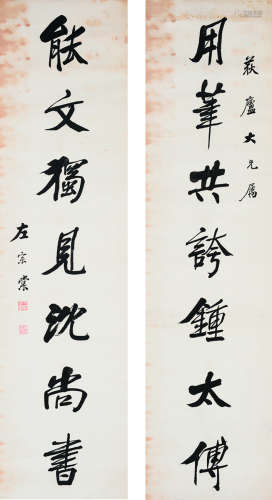 荻廬大兄属
用筆共誇鍾太傅
能文獨見沈尚書
左宗棠